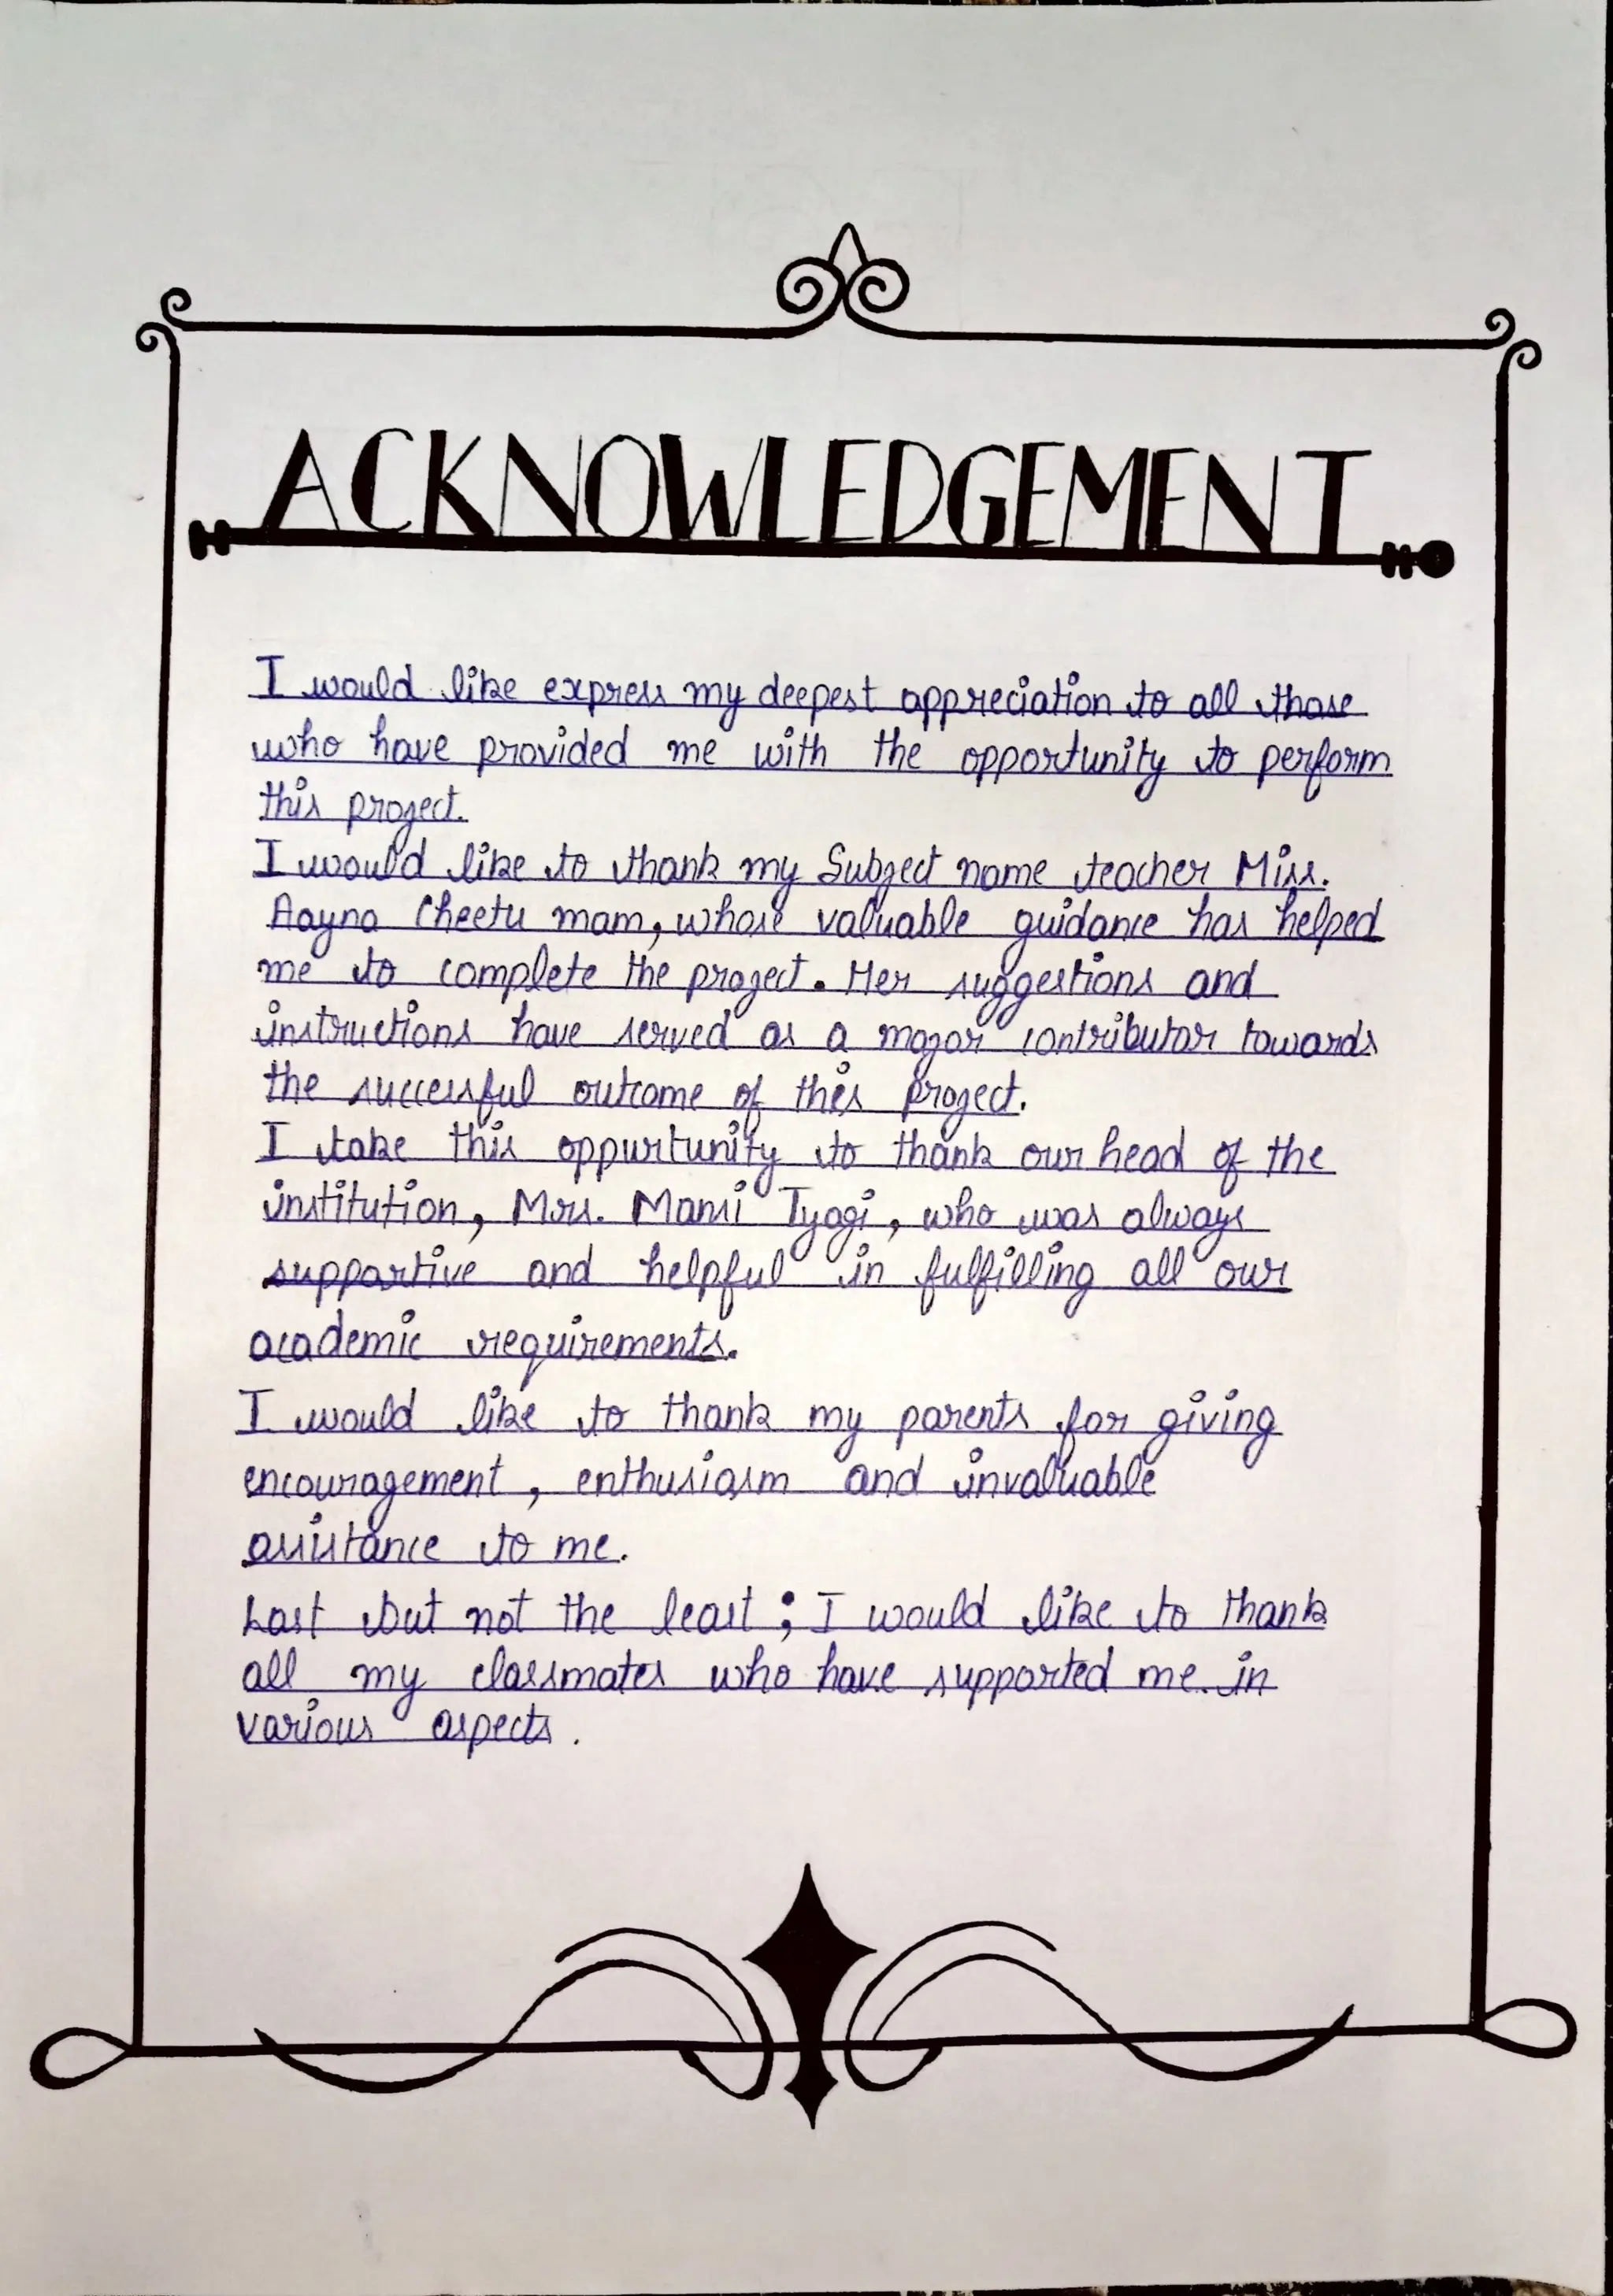 ACKNOWLEDGEMENT
I would like express my deepest appreciation to all those
who have provided me with the opportunity to perform
this project.
I would like to thank my Subject name teacher Miss.
Aayna Cheetu mam, whose valuable guidance has helped
me to complete the project. Her suggestions and
instructions have served as a major contributor towards
the successful outcome of this project.
I take this oppurtunity to thank our head of the
institution, Mrs. Mansi Tyagi, who was always
supportive and helpful in fulfilling all our
academic requirements.
I would like to thank my parents for giving
encouragement, enthusiasm and invaluable
assistance to me.
Last but not the least ; I would like to thank
all my classmates who have supported me in
various aspects.